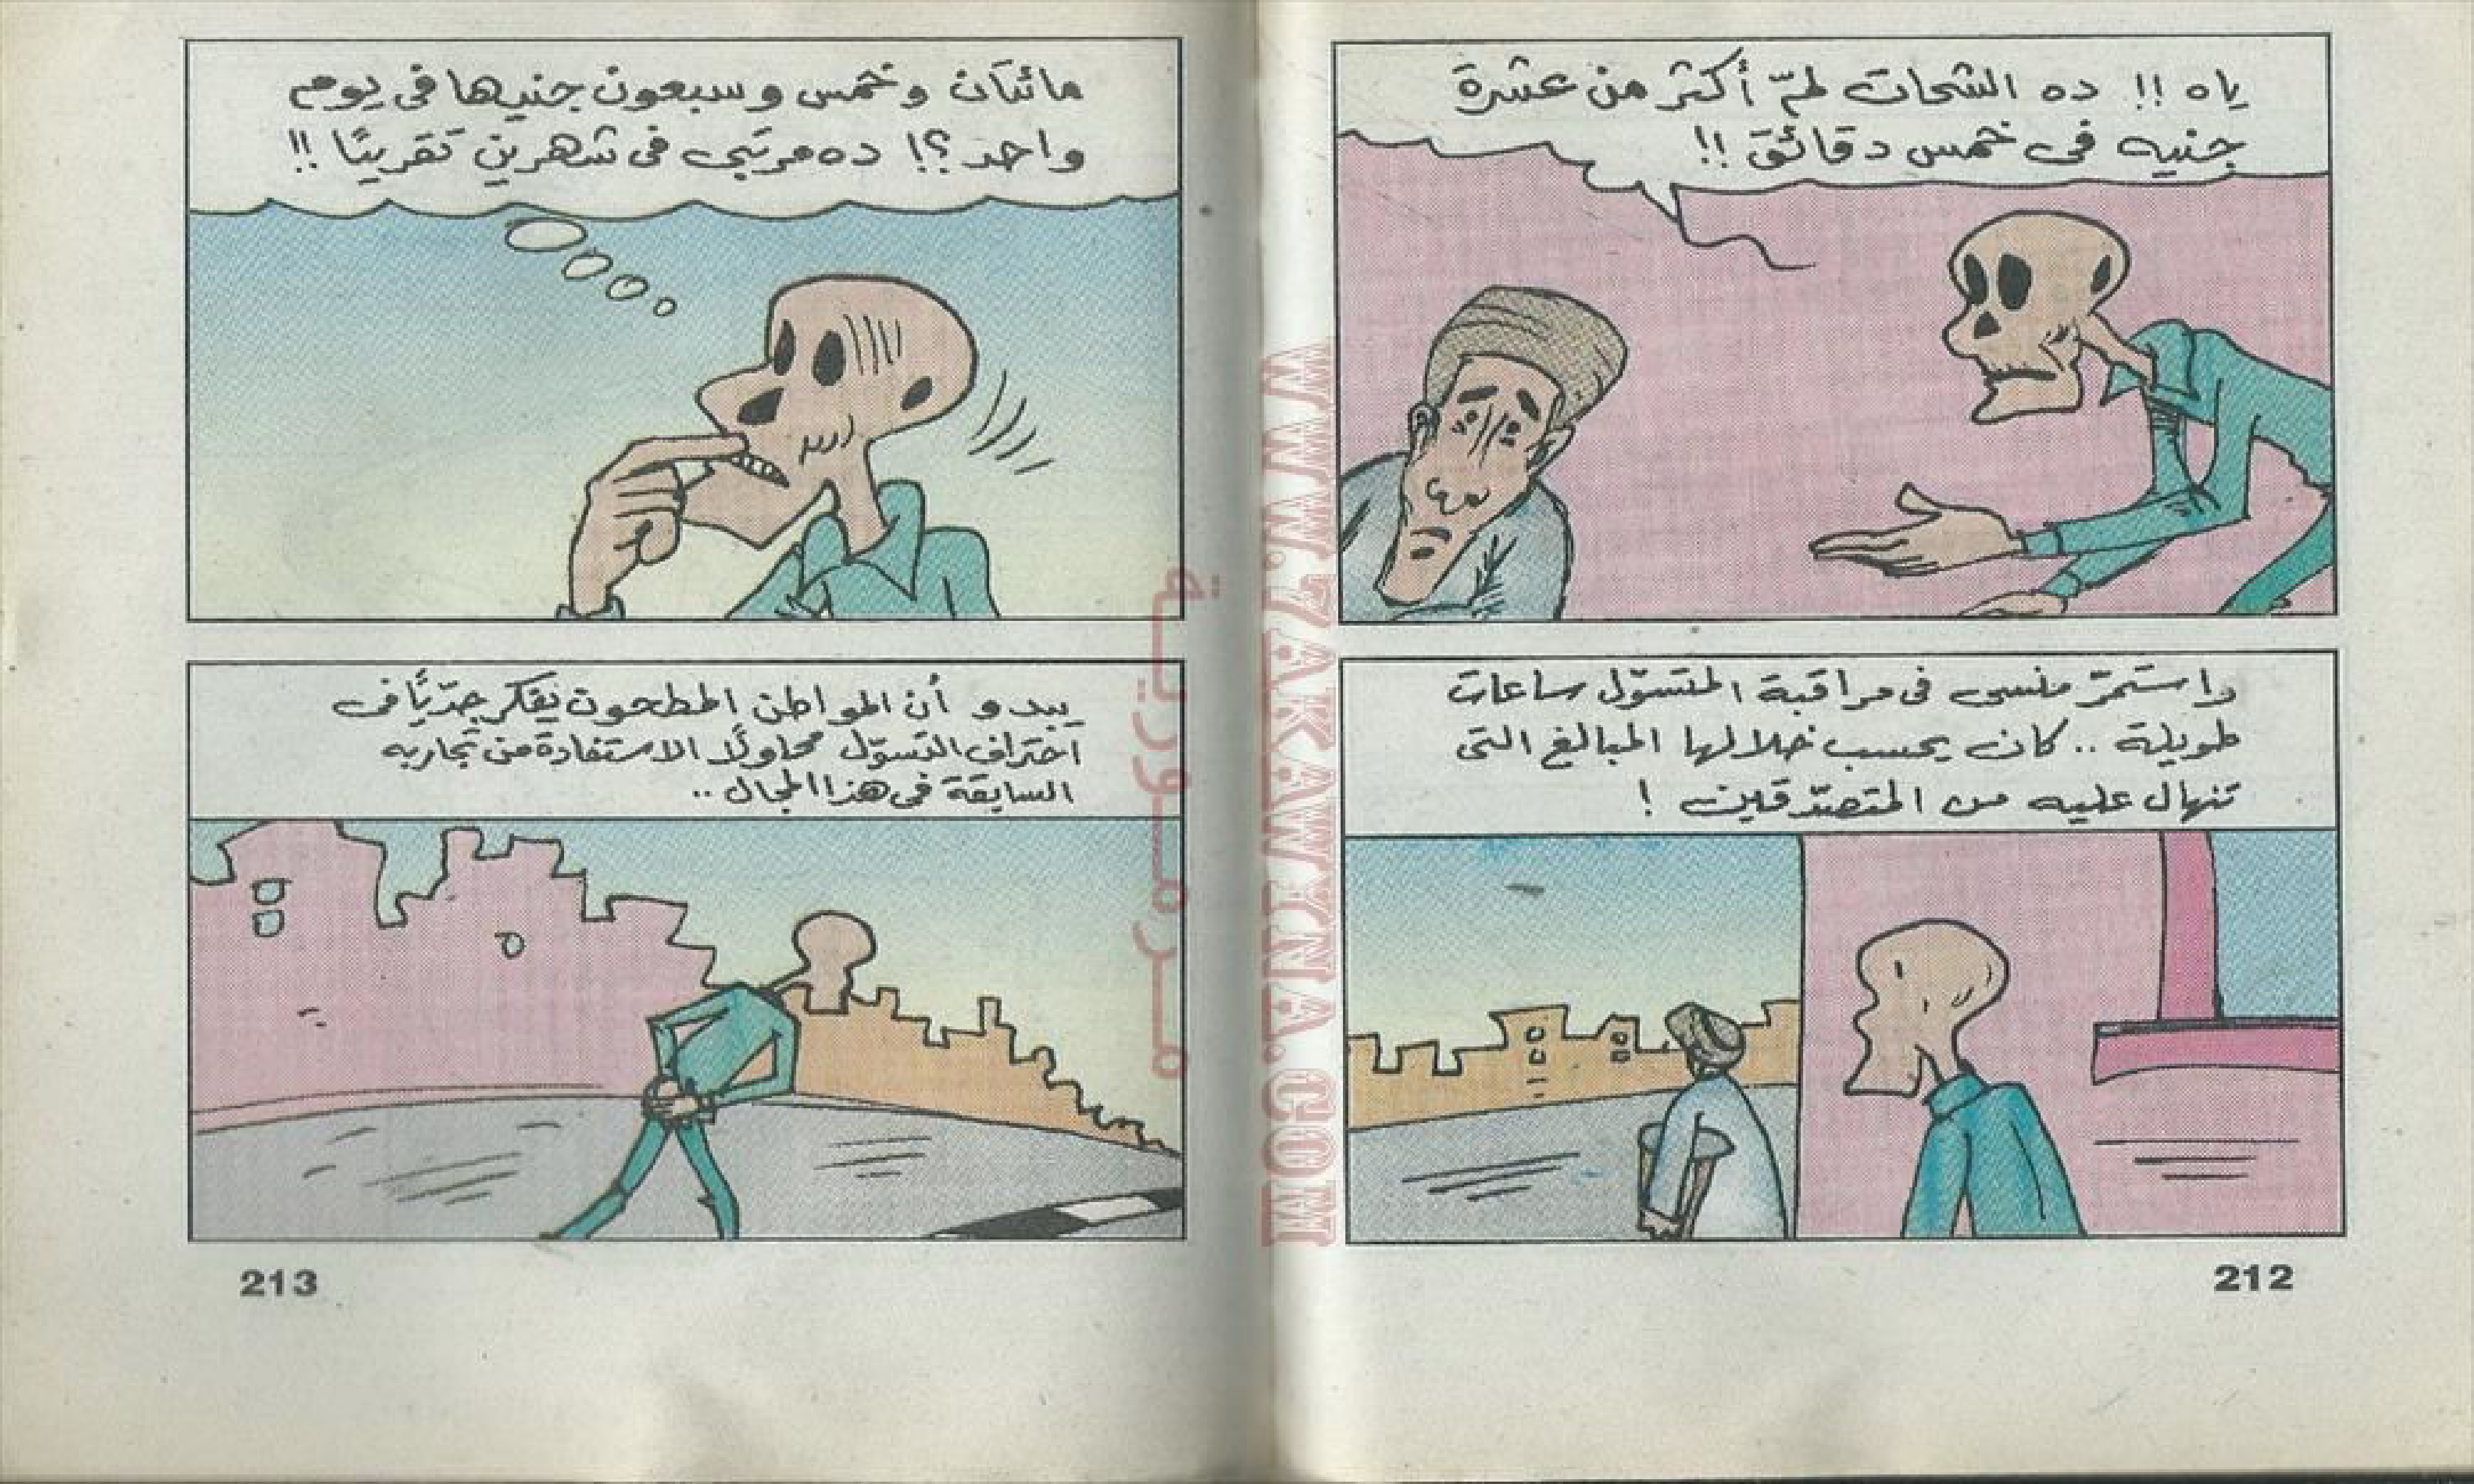 ياه !! ده الشحات لمّ أكثر من عشرة
جنيه فى خمس دقائق !!
واستمرّ منسى فى مراقبة المتسوّل ساعات
طويلة .. كان يحسب خلالها المبالغ التى
تنهال عليه من المتصدّقين !
212
مائتان وخمس وسبعون جنيها فى يوم
واحد ؟! ده مرتبى فى شهرين تقريبًا !!
يبدو أن المواطن المطحون يفكر جدّيًا فى
احتراف التسوّل محاولًا الاستفادة من تجاربه
السابقة فى هذا المجال ..
213
WWW.7AKAWYNA.COM